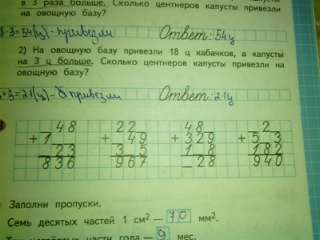 в 3 раза больше. Сколько центнеров капусты привезли
на овощную базу?
·3=54(ц)- привезли Ответ: 54ц
2) На овощную базу привезли 18 ц кабачков, а капусты
на 3 ц больше. Сколько центнеров капусты привезли на
овощную базу?
+3=21(ц)- привезли Ответ: 21ц
48 22 48 2
+1 + 49 +329 +5 3
23 3 5 182
836 967 28 940
Заполни пропуски.
Семь десятых частей 1 см² — 70 мм².
части года — 9 мес.